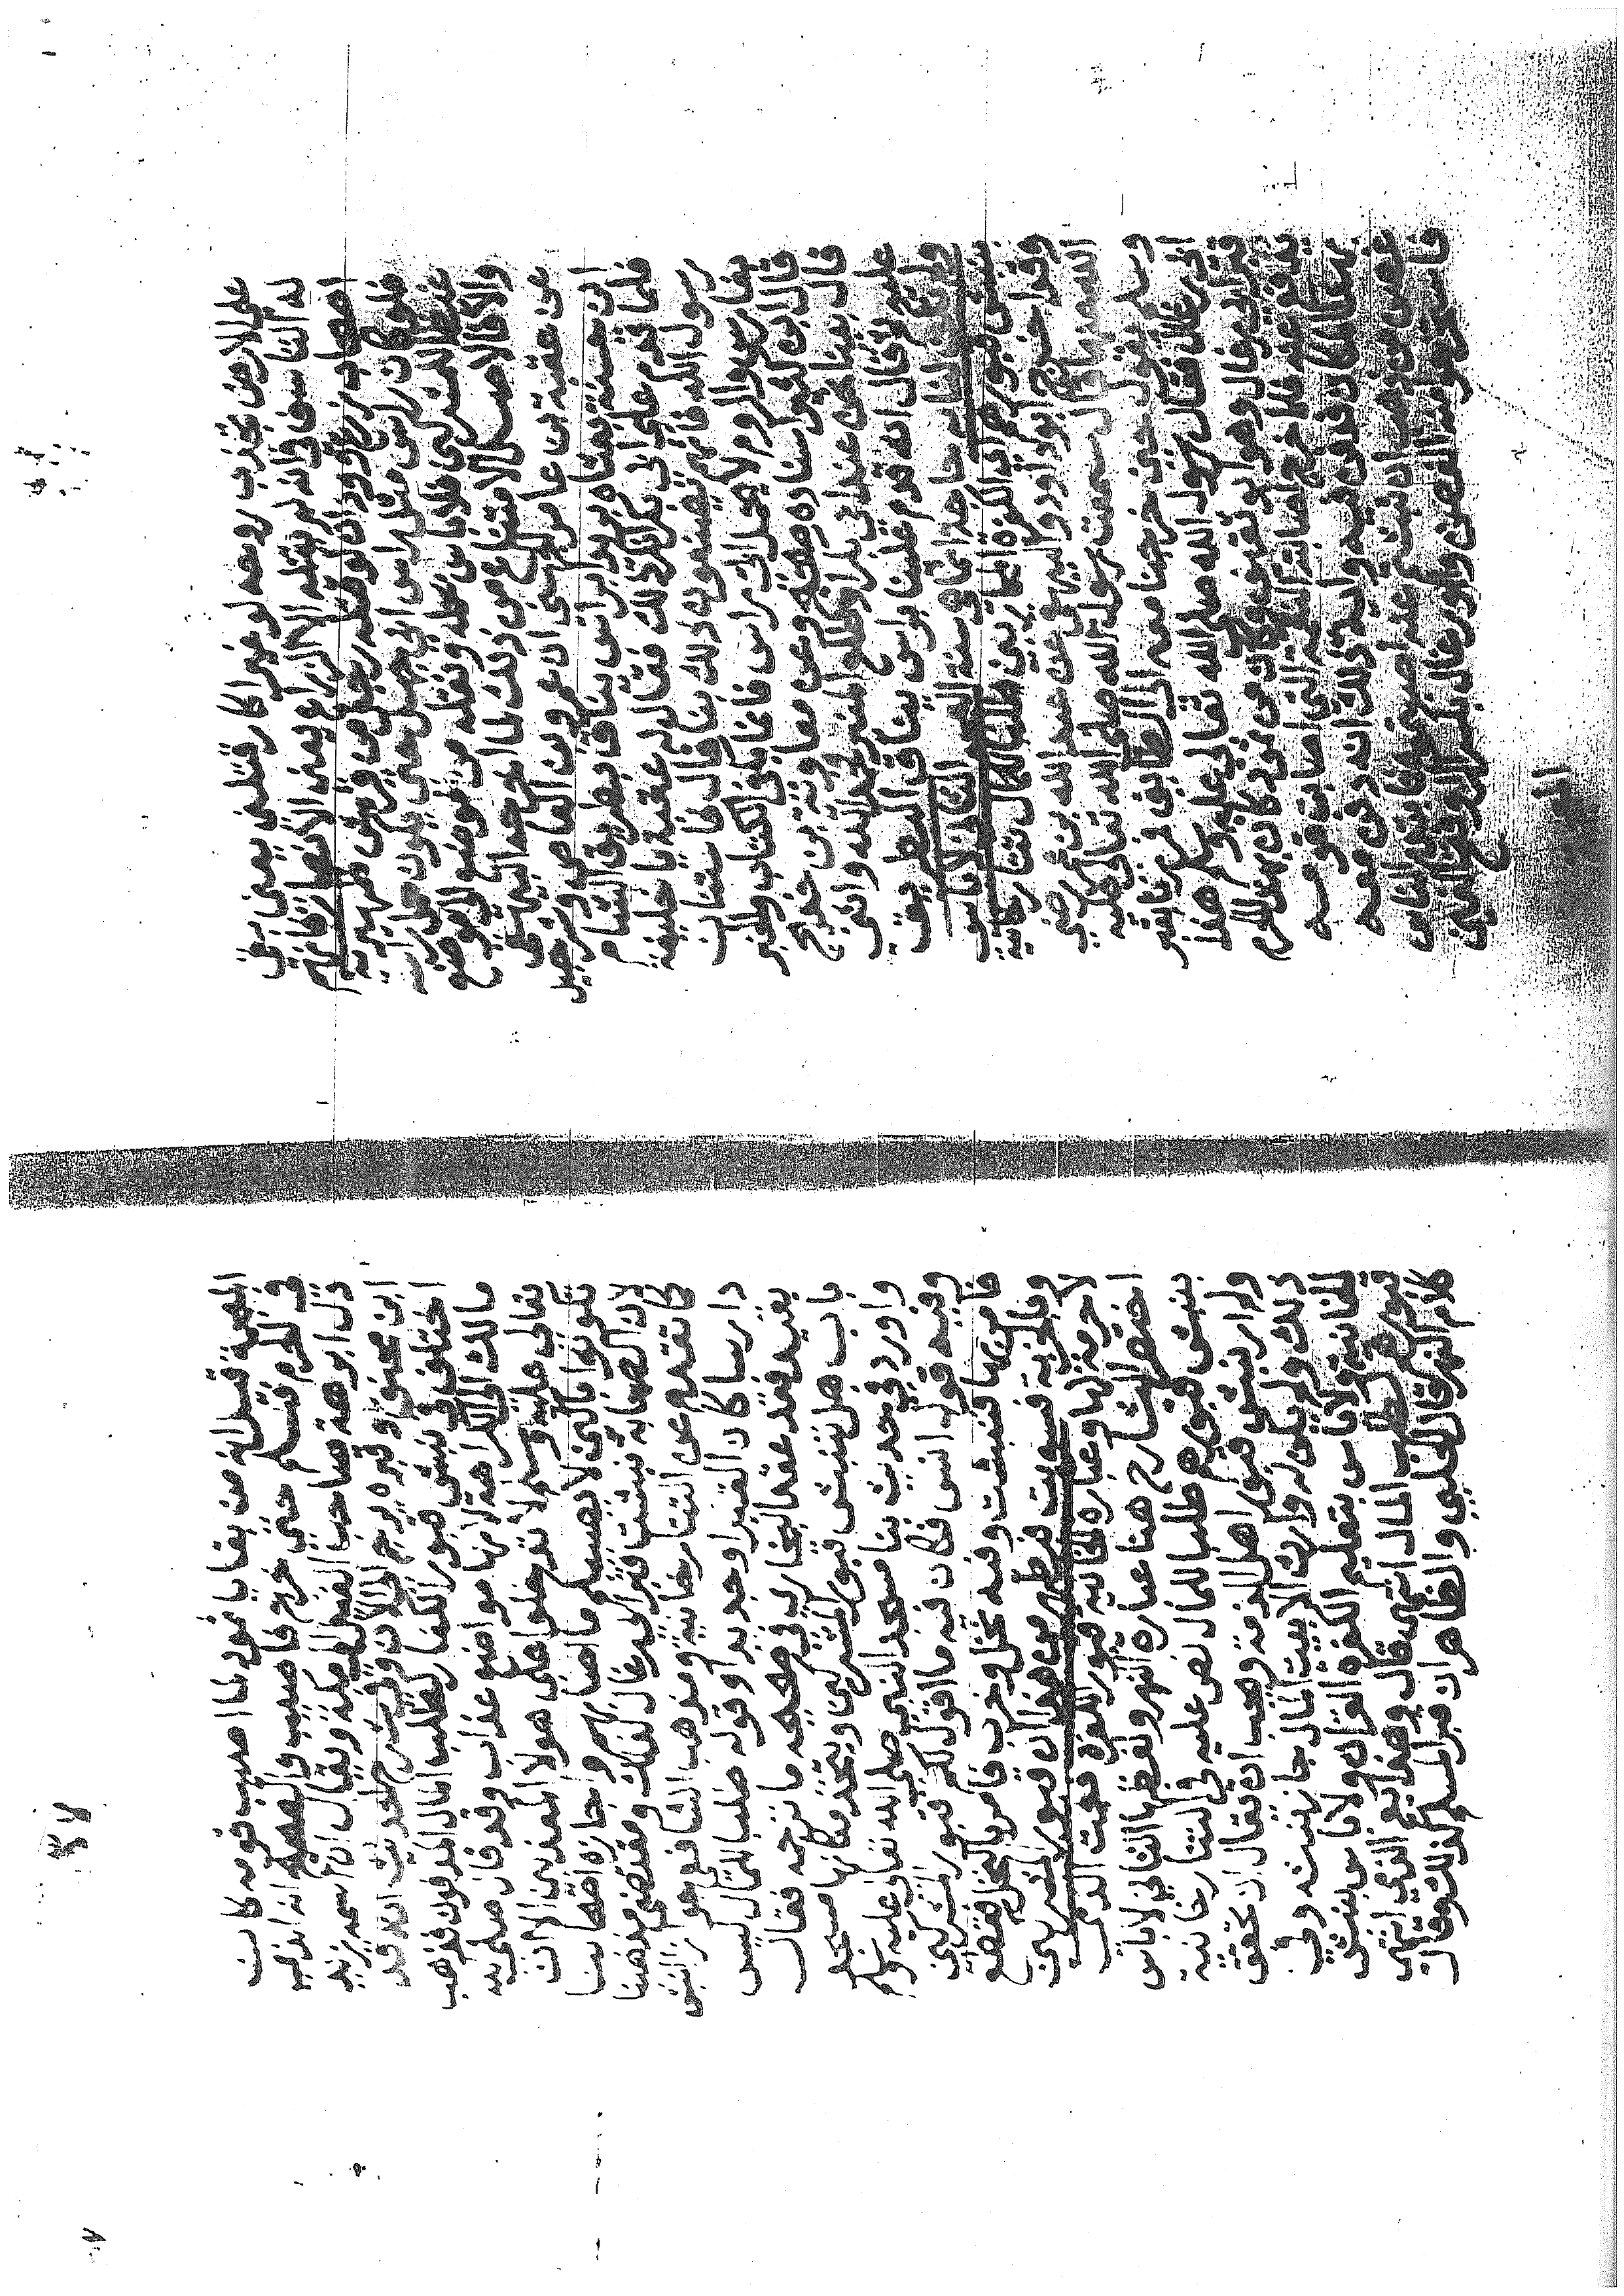 على الارض يجذب روحه لو غير اكار قتلني يعني ان
له التاسف فانه لم يقتله الا الزراع يعني الانصار فانهم
اصحاب زرع وود ان لو قتله رجل من قريش
فلو كان راس مثل راس ابي جهل حتى يكون
غيظ للمشركين فلا باس بحمله ونقله من موضع لموضع
والا فالاصل الامتناع من ذلك لما اخرجه البيهقي
عن عقبة بن عامر الجهني ان عمرو بن العاص وشرحبيل
ابن حسنة بعثاه بريدا براس يناق بطريق الشام
فلما قدم على ابي بكر انكر ذلك فقال له عقبة يا خليفة
رسول الله فانهم يصنعون ذلك بنا قال فاستنان
بفارس والروم لا يحمل الي راس فانما يكفي الكتاب والخبر
قال ابن كثير اسناده صحيح وعن معاوية بن خديج
قال بينا نحن عند ابي بكر اذ طلع المنبر فحمد الله واثنى
عليه وقال انه قدم علينا براس يناق البطريق
ولم تكن لنا به حاجة انما هو سنة العجم الثاني لا باس
بنبش قبورهم اي الكفرة المحاربين طلبا للمال تتارخانية
وقد اخرج ابو داود والبيهقي عن عبد الله بن عمر رضي
الله عنهما قال سمعت رسول الله صلى الله تعالى عليه
وسلم يقول حين خرجنا معه الى الطائف فمررنا بقبر
ابي رغال فقال رسول الله صلى الله تعالى عليه وسلم هذا
قبر ابي رغال وهو ابو ثقيف وكان من ثمود كان بهذا الحرم
يدفع عنه فلما خرج اصابته النقمة التي اصابت قومه
بهذا المكان فدفن فيه واية ذلك انه دفن معه
غصن من ذهب ان نبشتم عنه اصبتموه فابتدره الناس
فاستخرجوا منه الغصن وابو رغال بكسر الراء وفتح الغين
المعجمة قيل انه من بقايا ثمود لما اصيب قومه كان
في الحرم فسلم حتى خرج فاصيب والصحيح انه الذي
دل ابرهة صاحب الفيل لمكة ويقال ان اسمه يزيد
ابن وقبره يرجم الى الان وفي شرح الحديث انه قد
اختلف في نبش قبور الكفار لطلب المال المدفون فذهب
مالك الى الكراهة لانها مواضع عذاب وقد قال صلى الله
تعالى عليه وسلم لا تدخلوا على هولا المعذبين الا ان
تكونوا باكين لا يصيبكم ما اصابهم واجازه اصحابنا
لان الصحابة نبشت قبر ابي رغال لذلك ومقتضى مذهبنا
كما تقدم عن التتارخانية ومذهب الشافعي جواز النبش
دارسا كان القبر او جديدا وقوله طلبا للمال ليس
بقيد فقد عقد البخاري في صحيحه ما ترجمه فقال
باب هل ينبش قبور مشركين ويتخذ مكانها مسجد
واورد في حديث بنا مسجد النبي صلى الله تعالى عليه وسلم
وفيه قول انس فكان فيه ما اقول لكم قبور المشركين
فامر بها فنبشت وفيه نخل وخرب فامر بالنخل فقطع
وبالخربة فسويت فظهر من هذا ان قبور المشركين
لا حرمة لها وعبارة الخانية قبور الكفرة فعمت الذمي
اختصر الشارح هنا عبارة النهر ولفظها الثاني لا باس
بنبش قبورهم طلبا للمال نص عليه في التتارخانية
ولو اريد نبش قبور اهل الذمة وجب ان يقال ان تحقق
ذلك ولم يكن له وارث الا بيت المال جاز نبشه وفي
الخانية ولا باس بتعليم الكفرة القران ولا باس بنبش
قبورهم لطلب المال انتهى قال وهذا يعم الذمي انتهى
كلام النهر قال الحلبي والظاهر ان قبر المسلم كذلك وقال